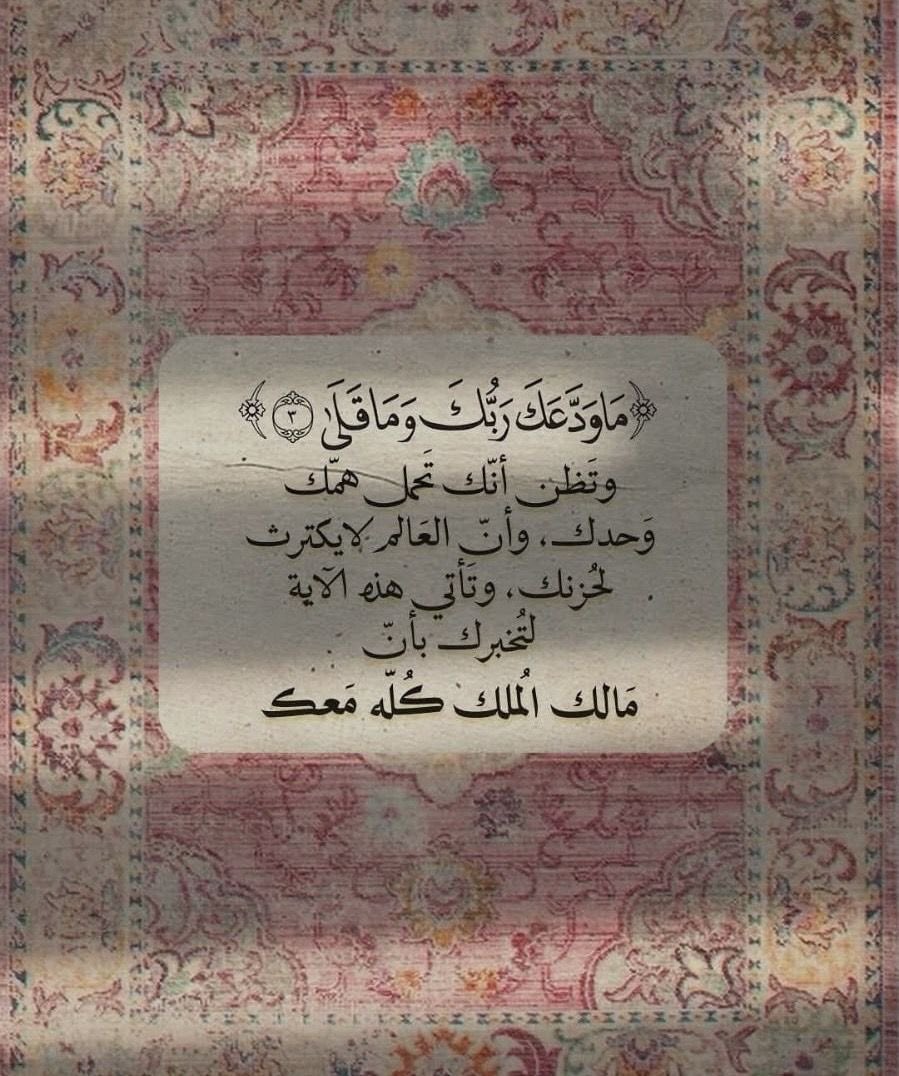 ﴿مَا وَدَّعَكَ رَبُّكَ وَمَا قَلَىٰ ٣﴾
وتَظن أنّك تَحمل همّك
وَحدك، وأنّ العَالم لايكترث
لحُزنك، وتَأتي هذه الآية
لتُخبرك بأنّ
مَالك الُملك كُلّه مَعك